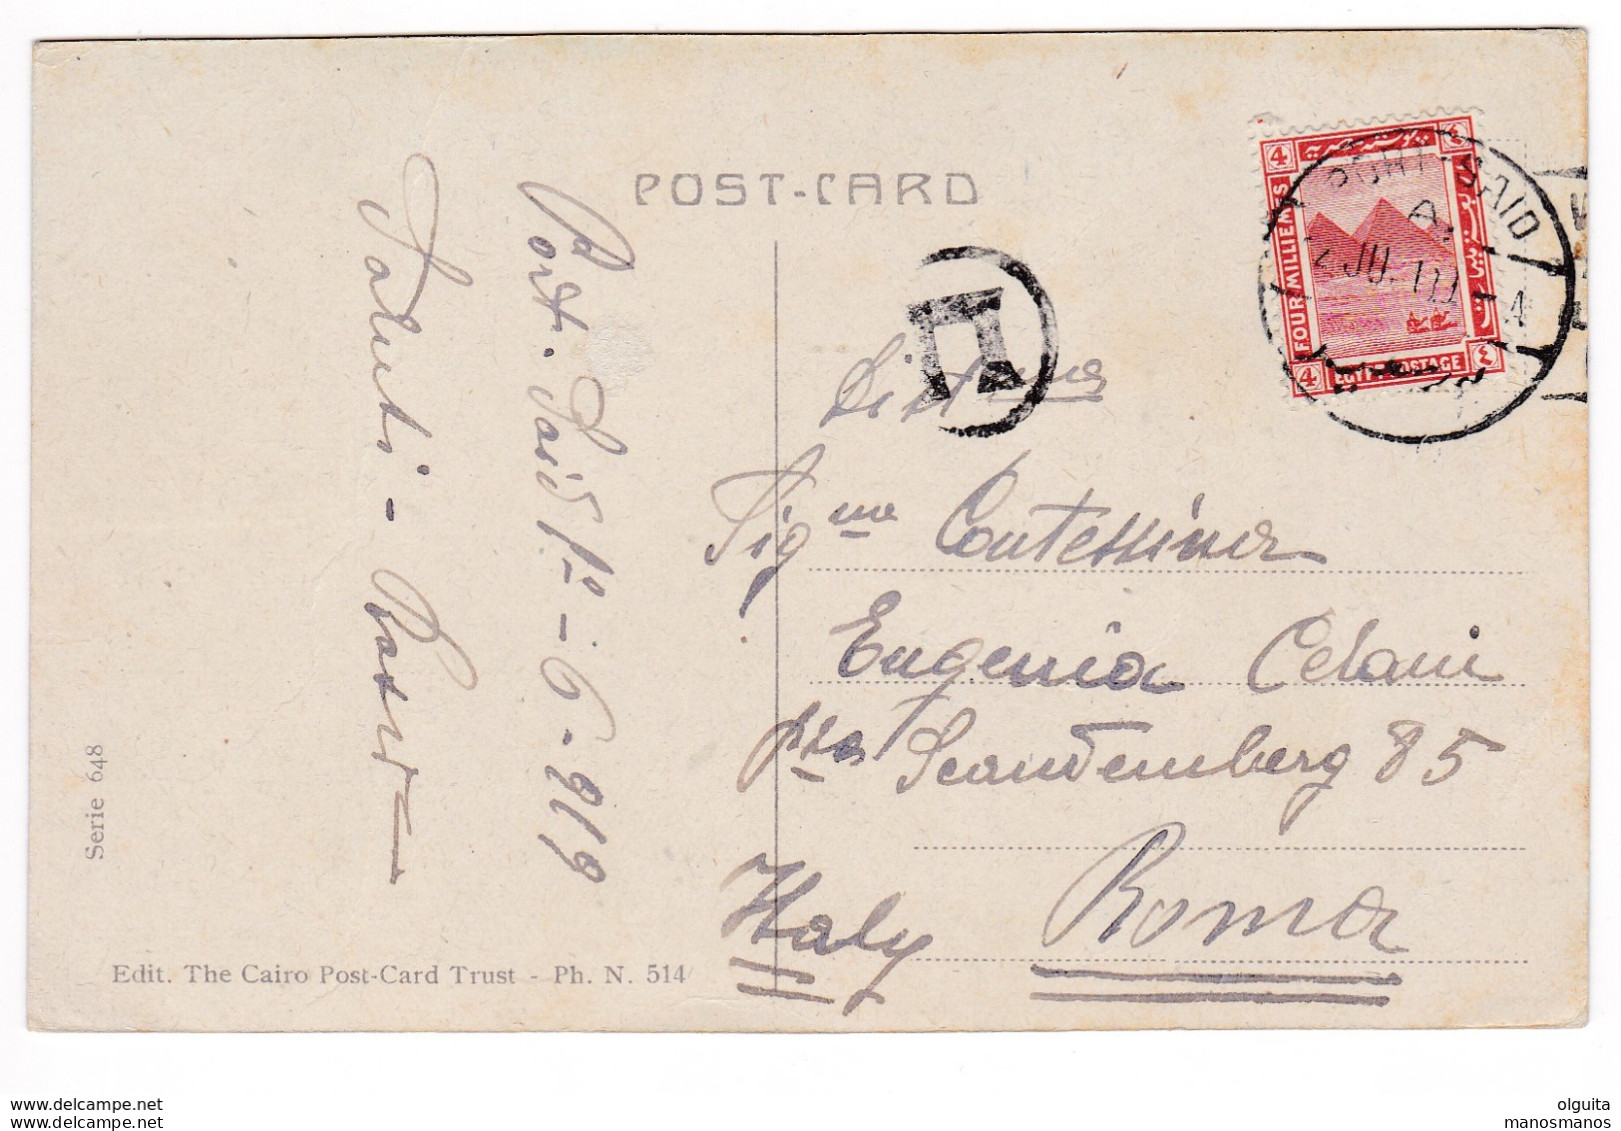 POST-CARD
Port-Said 1º-6-919
Saluti -
Sig.na Contessina
Eugenia Celani
Scandemberg 85
Roma
Italy
Serie 648
Edit. The Cairo Post-Card Trust - Ph. N. 514
4
FOUR MILLIEMES
4
EGYPT POSTAGE
PORT-SAID
A
2 JU. 19
www.delcampe.net
www.delcampe.net
olguita
manosmanos